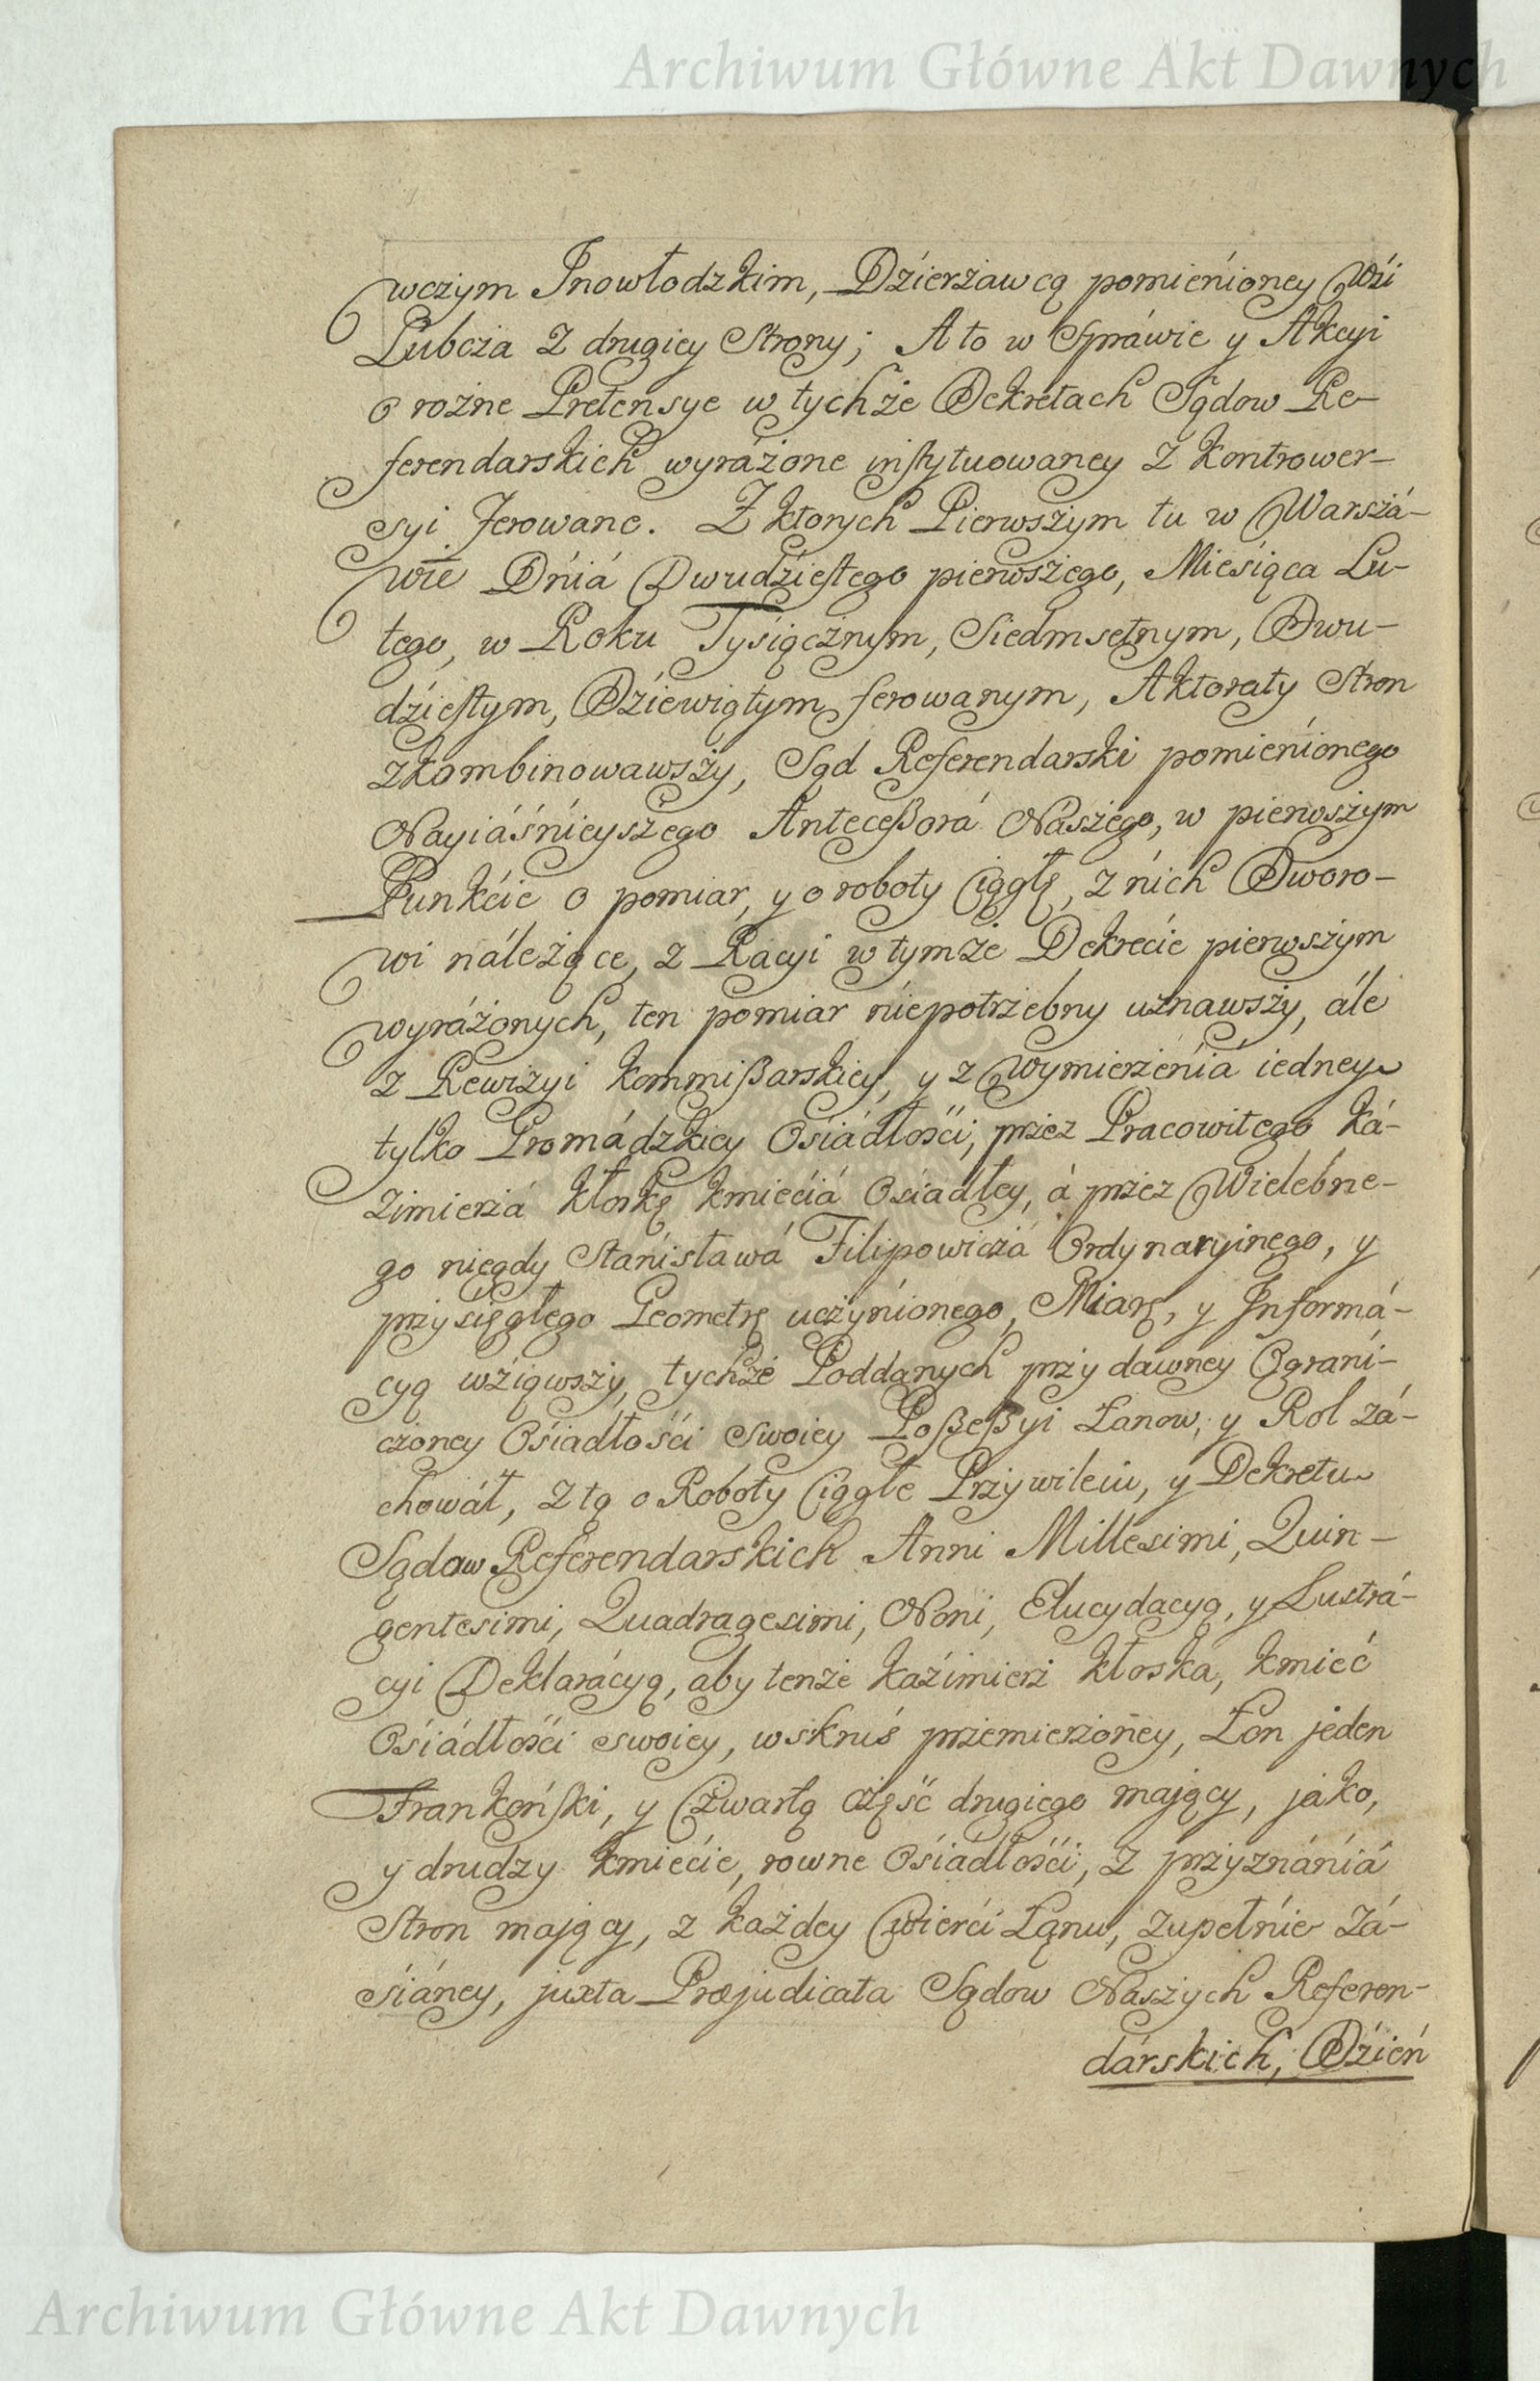 Archiwum Główne Akt Dawnych
wczym Inowłodzkim, Dzierżawcą pomienioney Wśi
Lubcża z drugiey Strony; A to w Spráwie y Akcyi
o rożne Pretensye w tychże Dekretach Sądow Re-
ferendarskich wyráżone instytuowaney z kontrower-
syi ferowane. Z ktorych Pierwszym tu w Warszá-
wie Dniá Dwudźiestego pierwszego, Miesiąca Lu-
tego, w Roku Tysiącżnym, Siedmsetnym, Dwu-
dźiestym, Dźiewiątym ferowanym, Aktoraty Stron
zkombinowawszy, Sąd Referendarski pomienionego
Nayiáśnieyszego Anteceßorá Nászego, w pierwszym
Punkćie o pomiar, y o roboty Ciągłę, z nich Dworo-
wi náleżące, z Racyi w tymże Dekrecie pierwszym
wyráżonych, ten pomiar niepotrzebny uznawszy, ále
z Rewizyi kommißarskiey, y z wymierzeniá iedney
tylko Gromádzkiey Osiádłośći, przez Pracowitego Ká-
zimierzá kłoskę kmiećiá Osiadłey, á przez Wielebne-
go niegdy Stanisławá Filipowiczá Ordynaryinego, y
przysięgłego Geometrę uczynionego, Miarę, y Informá-
cyą wźiąwszy, tychże Poddanych przy dawney Ograni-
czoney Osiadłośći swoiey Poßeßyi Łanow, y Rol zá-
chowáł, z tą o Roboty Ciągłe Przywileiu, y Dekretu
Sądow Referendarskich Anni Millesimi, Quin-
gentesimi, Quadragesimi, Noni, Elucydacyą, y Lustrá-
cyi Deklarácyą, aby tenże Kaźimierz kłoska, kmieć
Osiádłośći swoiey, wskruś przemierzoney, Łon jeden
Frankoński, y Czwartą część drugiego mający, jako,
y drudzy kmiećie, rowne Osiádłośći, z przyznániá
Stron mający, z każdey Cwierći Łąnu, zupełnie zá-
śiáney, juxta Præjudicata Sądow Naszych Referen-
dárskich, Dźień
Archiwum Główne Akt Dawnych